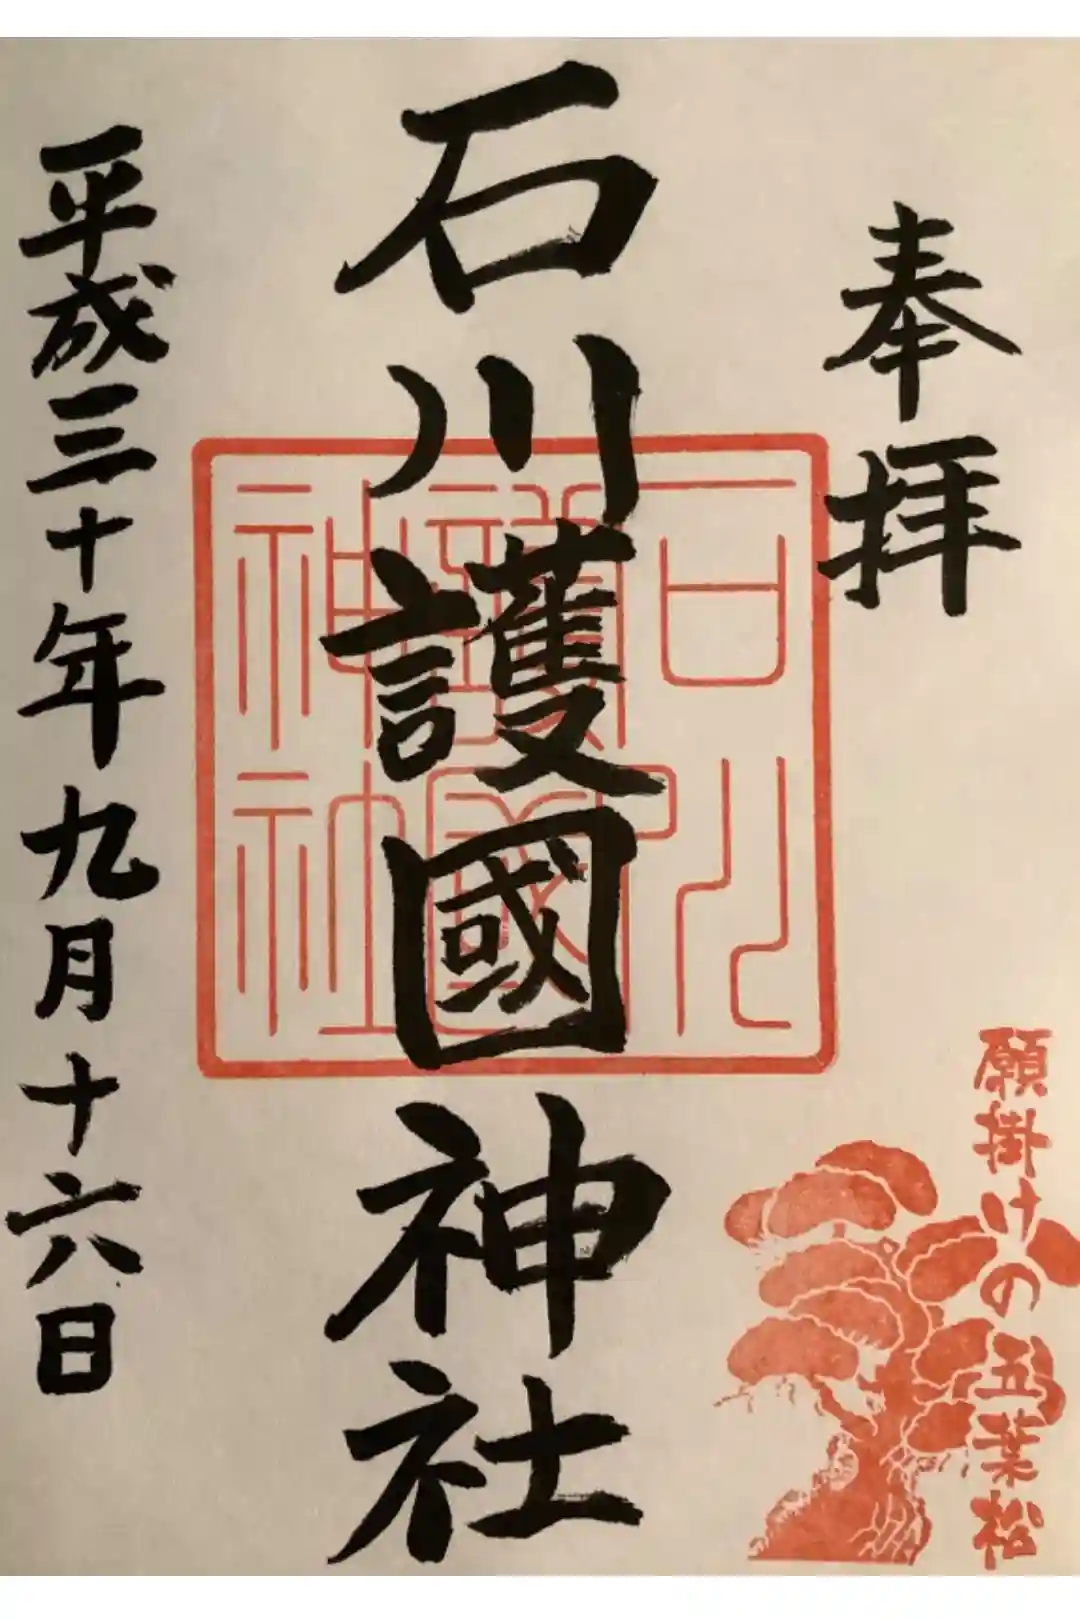 奉拝
願掛けの五葉松
石川護國神社
石川
護國
神社
平成三十年九月十六日